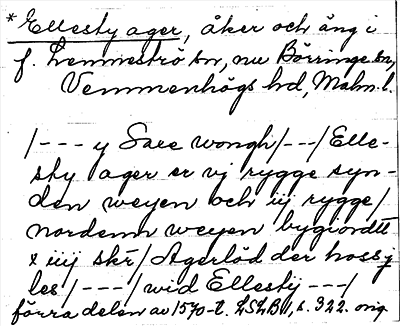 * Ellesty ager, åker och äng i
f. Lemmeströ sn, nu Börringe sn,
Vemmenhögs hd, Malm. l.
/--- y Saxe wongh/---/Elle-
sty ager er vj rygge syn-
den weyen och iij rygge/
nordenn weyen bygiordtt
x iiij skr̄/ Agerlöd der hoss j
les/---/wid Ellestij---/
förra delen av 1570-t. LSLB 1, s. 322. orig.